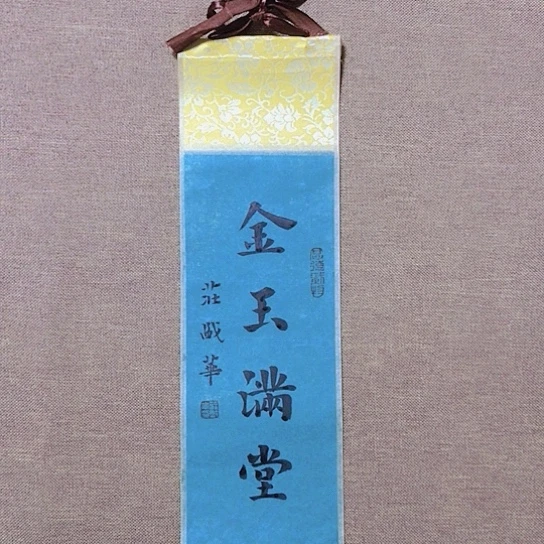 金玉滿堂
莊啟華